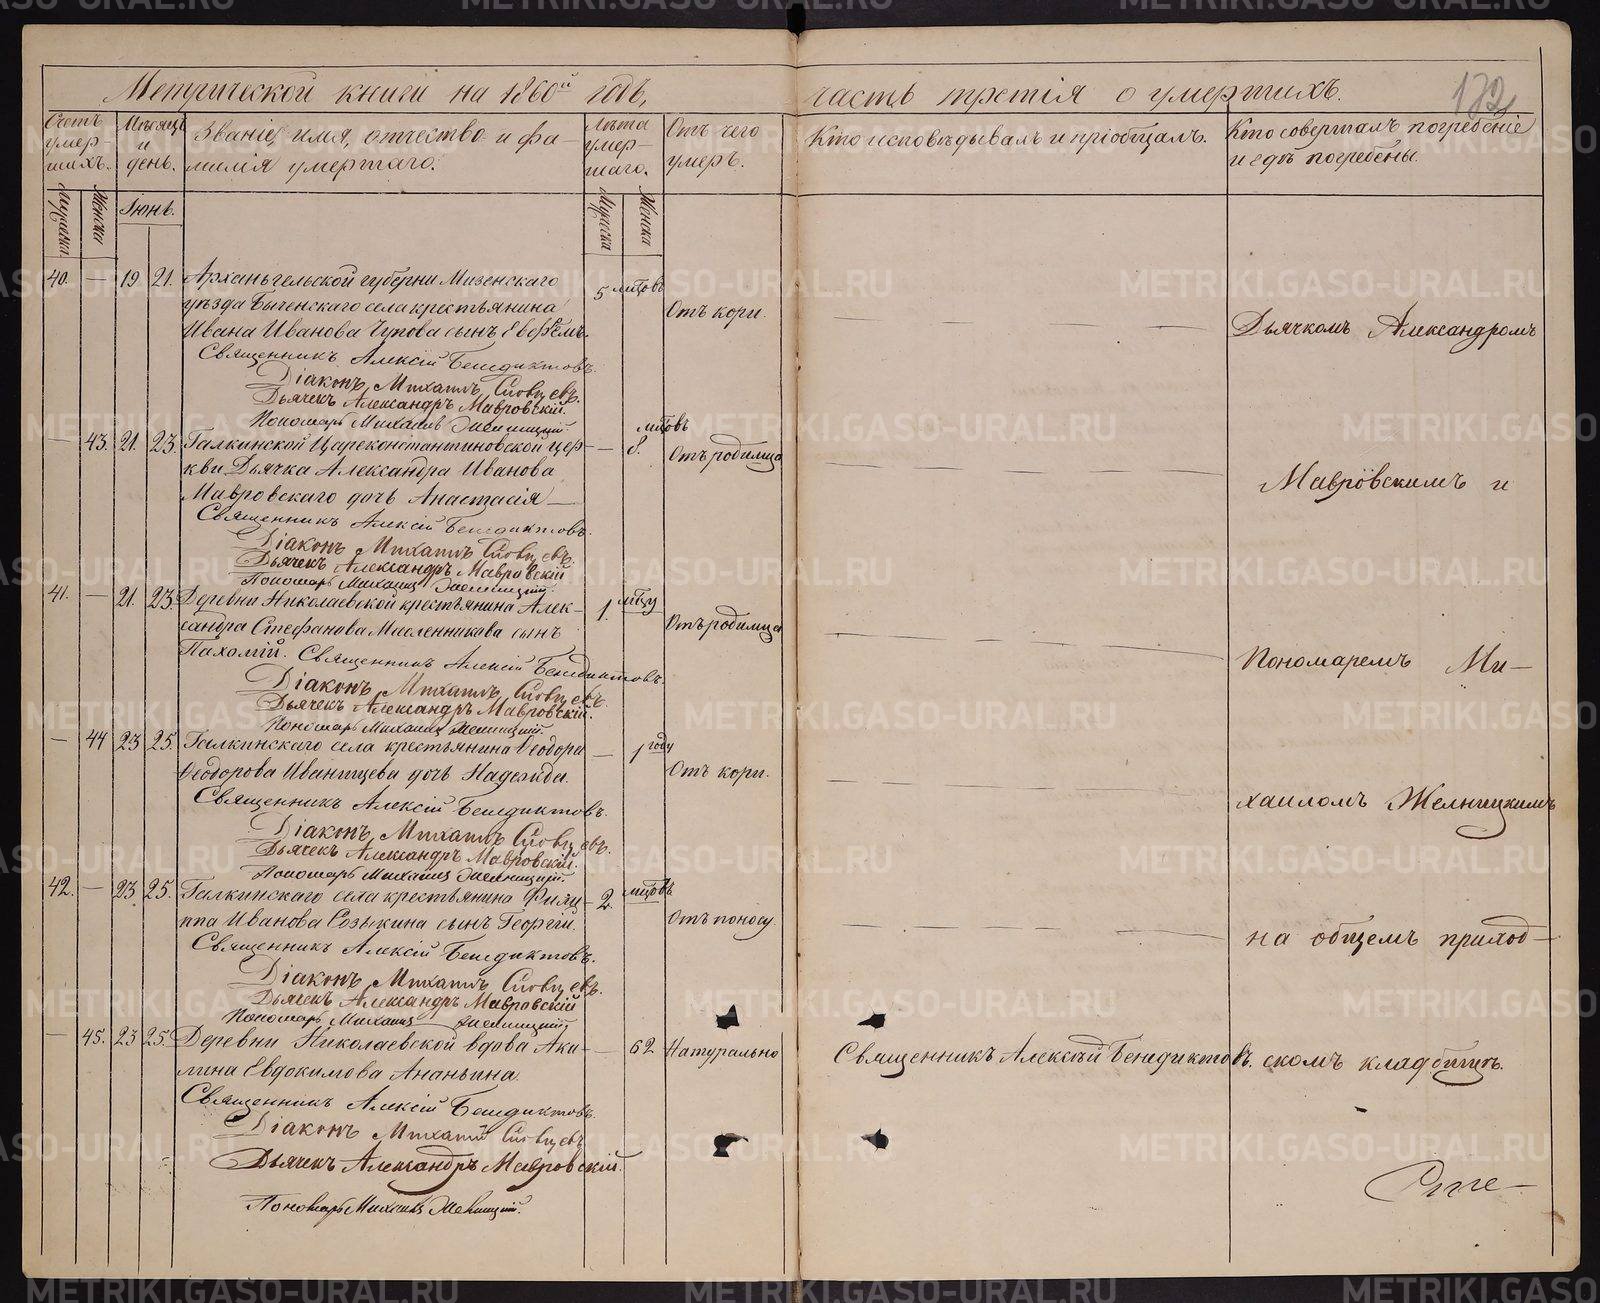 Метрической книги на 1860й годъ, часть третія о умершихъ.
172
Счетъ умер-шихъ.
Мѣсяцъ и день.
Званіе, имя, отчество и фа-
милія умершаго.
Лѣта умер-шаго.
Отъ чего умеръ.
Кто исповѣдывалъ и пріобщалъ.
Кто совершалъ погребеніе
и гдѣ погребены.
Мужска
Женска
Іюнь.
Мужска
Женска
40. — 19. 21. Архангельской губерни Мизенскаго
уѣзда Быченскаго села крестьянина 5 мѣцовъ Отъ кори.
Ивана Иванова Чупова сынъ Евфѣмъ. Дьячкомъ Александромъ
Священникъ Алексій Бенедиктовъ.
Діаконъ, Михаилъ Словцевъ.
Дьячекъ Александръ Мавровскій.
Пономарь Михаилъ Желницкій.
— 43. 21. 23. Галкинской Цареконстантиновской цер- — 8. мѣцовъ Отъ родимца
кви Дьячка Александра Иванова
Мавровскаго дочь Анастасія — Мавровскимъ и
Священникъ Алексій Бенедиктовъ.
Діаконъ, Михаилъ Словцевъ.
Дьячекъ Александръ Мавровскій
Пономарь Михаилъ Желницкій.
41. — 21. 23. Деревни Николаевской крестьянина Алек- 1. мѣцу
сандра Стефанова Масленникова сынъ Отъ родимца
Пахомій. Священникъ Алексій Бенедиктовъ. Пономаремъ Ми-
Діаконъ, Михаилъ Словцевъ.
Дьячекъ Александръ Мавровскій.
Пономарь Михаилъ Желницкій.
— 44 23 25. Галкинскаго села крестьянина Ѳеодора — 1 году
Ѳеодорова Иванищева дочь Надежда. Отъ кори.
Священникъ Алексій Бенедиктовъ. хаиломъ Желницкимъ
Діаконъ, Михаилъ Словцевъ.
Дьячекъ Александръ Мавровскій.
Пономарь Михаилъ Желницкій.
42. — 23. 25. Галкинскаго села крестьянина Фили- 2. мѣцовъ
ппа Иванова Созыкина сынъ Георгій. Отъ поносу.
Священникъ Алексій Бенедиктовъ. на общемъ приход-
Діаконъ, Михаилъ Словцевъ.
Дьячекъ Александръ Мавровскій
Пономарь Михаилъ Желницкій.
— 45. 23 25. Деревни Николаевской вдова Аки- — 62 Натурально Священникъ Алексѣй Бенедиктовъ. скомъ кладбищѣ.
лина Евдокимова Ананьина.
Священникъ Алексій Бенедиктовъ.
Діаконъ Михаилъ Словцевъ
Дьячекъ Александръ Мавровскій.
Пономарь Михаилъ Желницкій.
METRIKI.GASO-URAL.RU